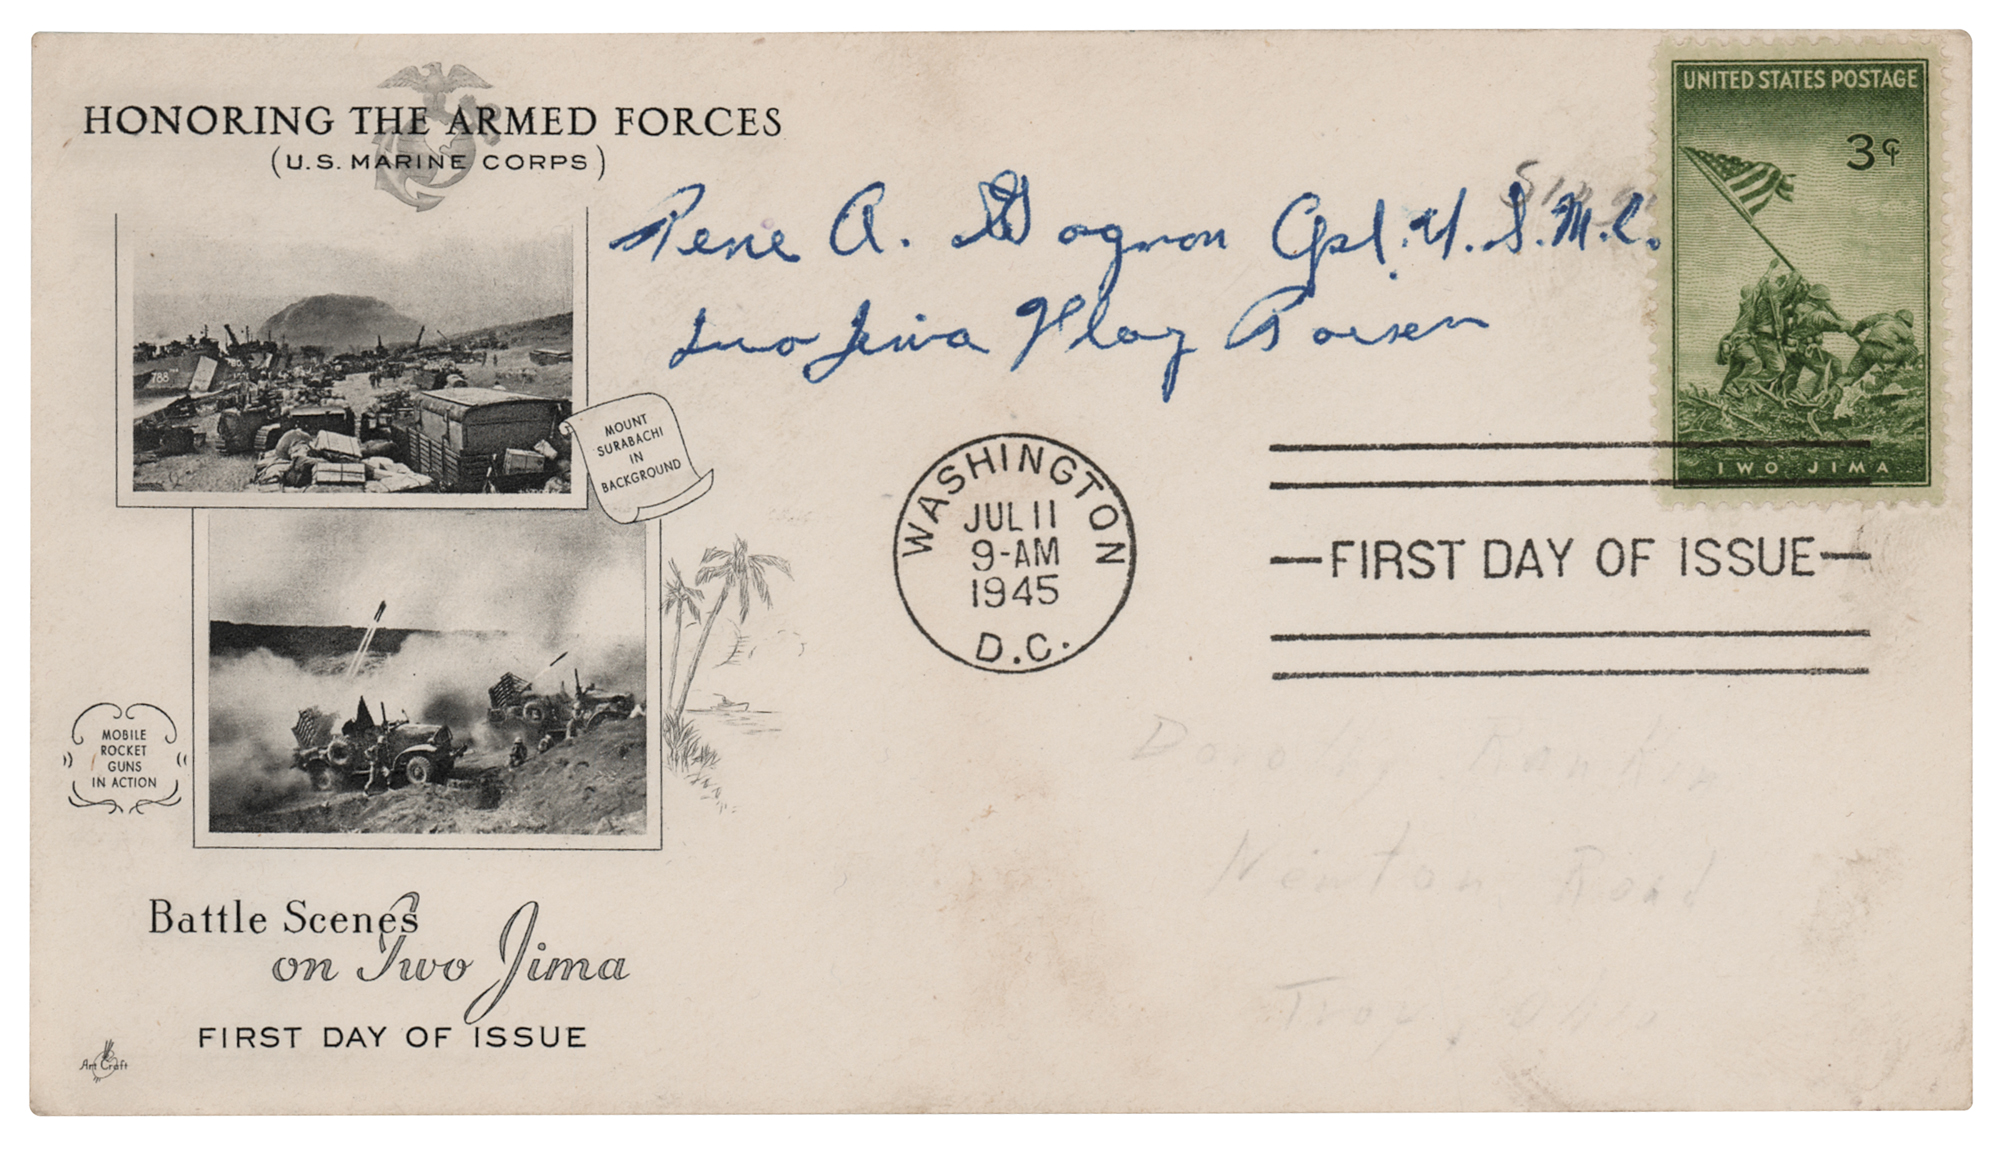 HONORING THE ARMED FORCES
(U.S. MARINE CORPS)
UNITED STATES POSTAGE
3¢
Rene A. Gagnon Cpl. U.S.M.C.
Iwo Jima Flag Raiser
788
MOUNT
SURABACHI
IN
BACKGROUND
IWO JIMA
WASHINGTON
JUL 11
9-AM
1945
D.C.
FIRST DAY OF ISSUE
MOBILE
ROCKET
GUNS
IN ACTION
Dorothy Rankin
Newton Road
Troy, Ohio
Battle Scenes
on Iwo Jima
FIRST DAY OF ISSUE
Art Craft